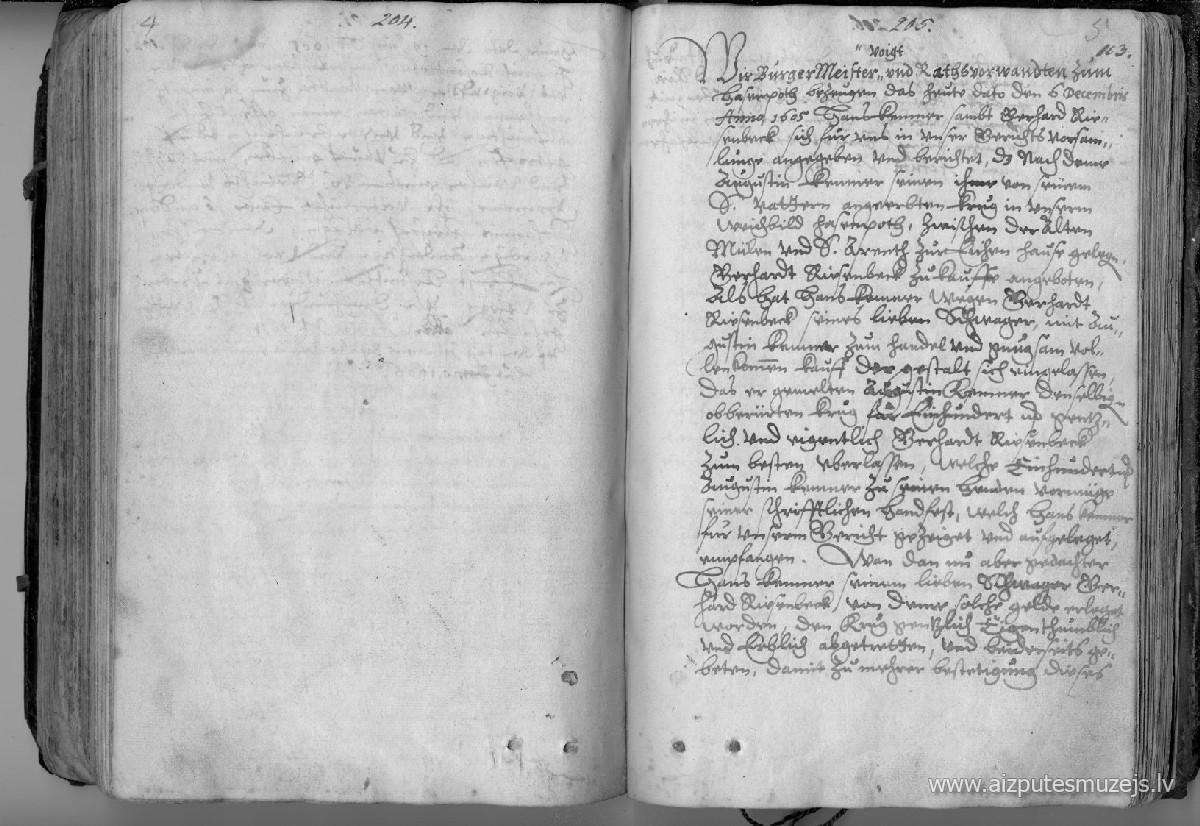 4
204.
205.
5
113.
" Voigt
Wir BürgerMeister " und Rathsvorwandten zum
Hasenpoth bezeugen das heute dato den 6 Decembris
Anno 1605 Hans Kemner sambt Gerhard Rie-
senbeck sich für uns in unser Gerichts Versam-
lunge angegeben und berichtet, dz Nach deme
Augustin Kemner seinen ihme von seinem
S. Vattern angeerbten Krug in unserm
Weichbild Hasenpoth, zwischen der Alten
Mülen und S. Arenth zur Eichen hause gelegen,
Gerhardt Riesenbeck zu kauffe angeboten,
Als hat Hans Kemner wegen Gerhardt
Riesenbeck seines lieben Schwager, mit Au-
gustin Kemner zum handel und gnugsam vol-
lenkomen kauff der gestalt sich eingelassen,
das er gemelten Augustin Kemner denselbigen
obberürten Krug für Einhundert
lich und eigentlich Gerhardt Riesenbeck
zum besten uberlassen, welche Einhundert
Augustin Kemner zu seinen henden vermüge
seiner schrifftlichen handfest, welch Hans Kemner
für unserm Gericht gezeiget und aufgeleget,
empfangen. Wan dan nu aber gedachter
Hans Kemner seinem lieben Schwager Ger-
hard Riesenbeck, von deme solche gelde erlegt
worden, den Krug gentzlich Eigenthumblich
und Erblich abgetretten, und beiderseits ge-
beten, damit zu mehrer bestetigung dieses
www.aizputesmuzejs.lv